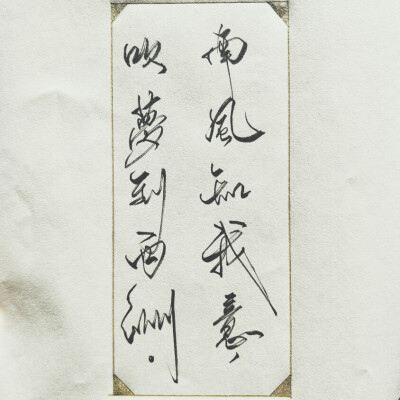 南風知我意，
吹夢到西洲。